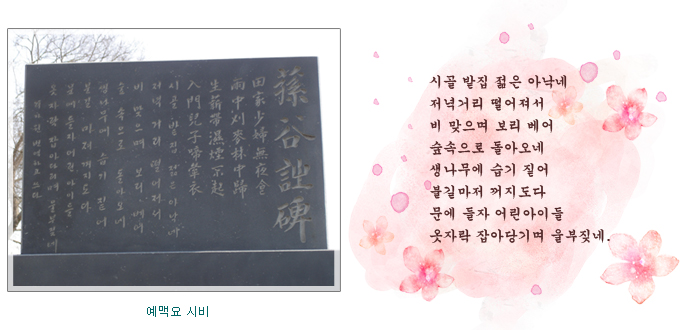 蓀谷詩碑
田家少婦無夜食
雨中刈麥林中歸
生薪帶濕煙不起
入門兒子啼牽衣
시골 밭집 젊은 아낙네
저녁거리 떨어져서
비 맞으며 보리 베어
숲속으로 돌아오네
생나무에 습기 짙어
불길마저 꺼지도다
문에 들자 어린아이들
옷자락 잡아당기며 울부짖네
예맥요 시비
시골 밭집 젊은 아낙네
저녁거리 떨어져서
비 맞으며 보리 베어
숲속으로 돌아오네
생나무에 습기 짙어
불길마저 꺼지도다
문에 들자 어린아이들
옷자락 잡아당기며 울부짖네.